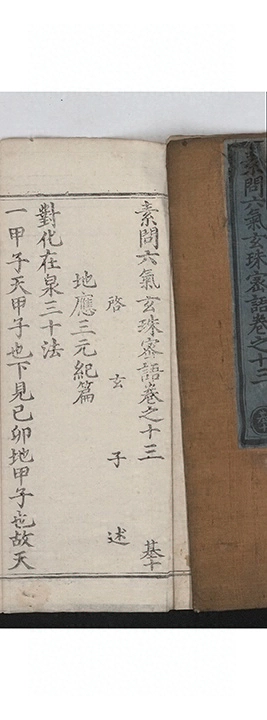 素問六氣玄珠密語卷之十三
素問六氣玄珠密語卷之十三 基十
啓玄子述
地應三元紀篇
對化在泉三十法
一甲子天甲子也下見己卯地甲子也故天